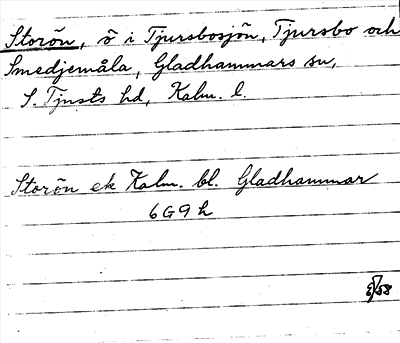 Storön, ö i Tjursbosjön, Tjursbo och
Smedjemåla, Gladhammars sn,
S. Tjusts hd, Kalm. l.
Storön ek Kalm. bl. Gladhammar
6G9h